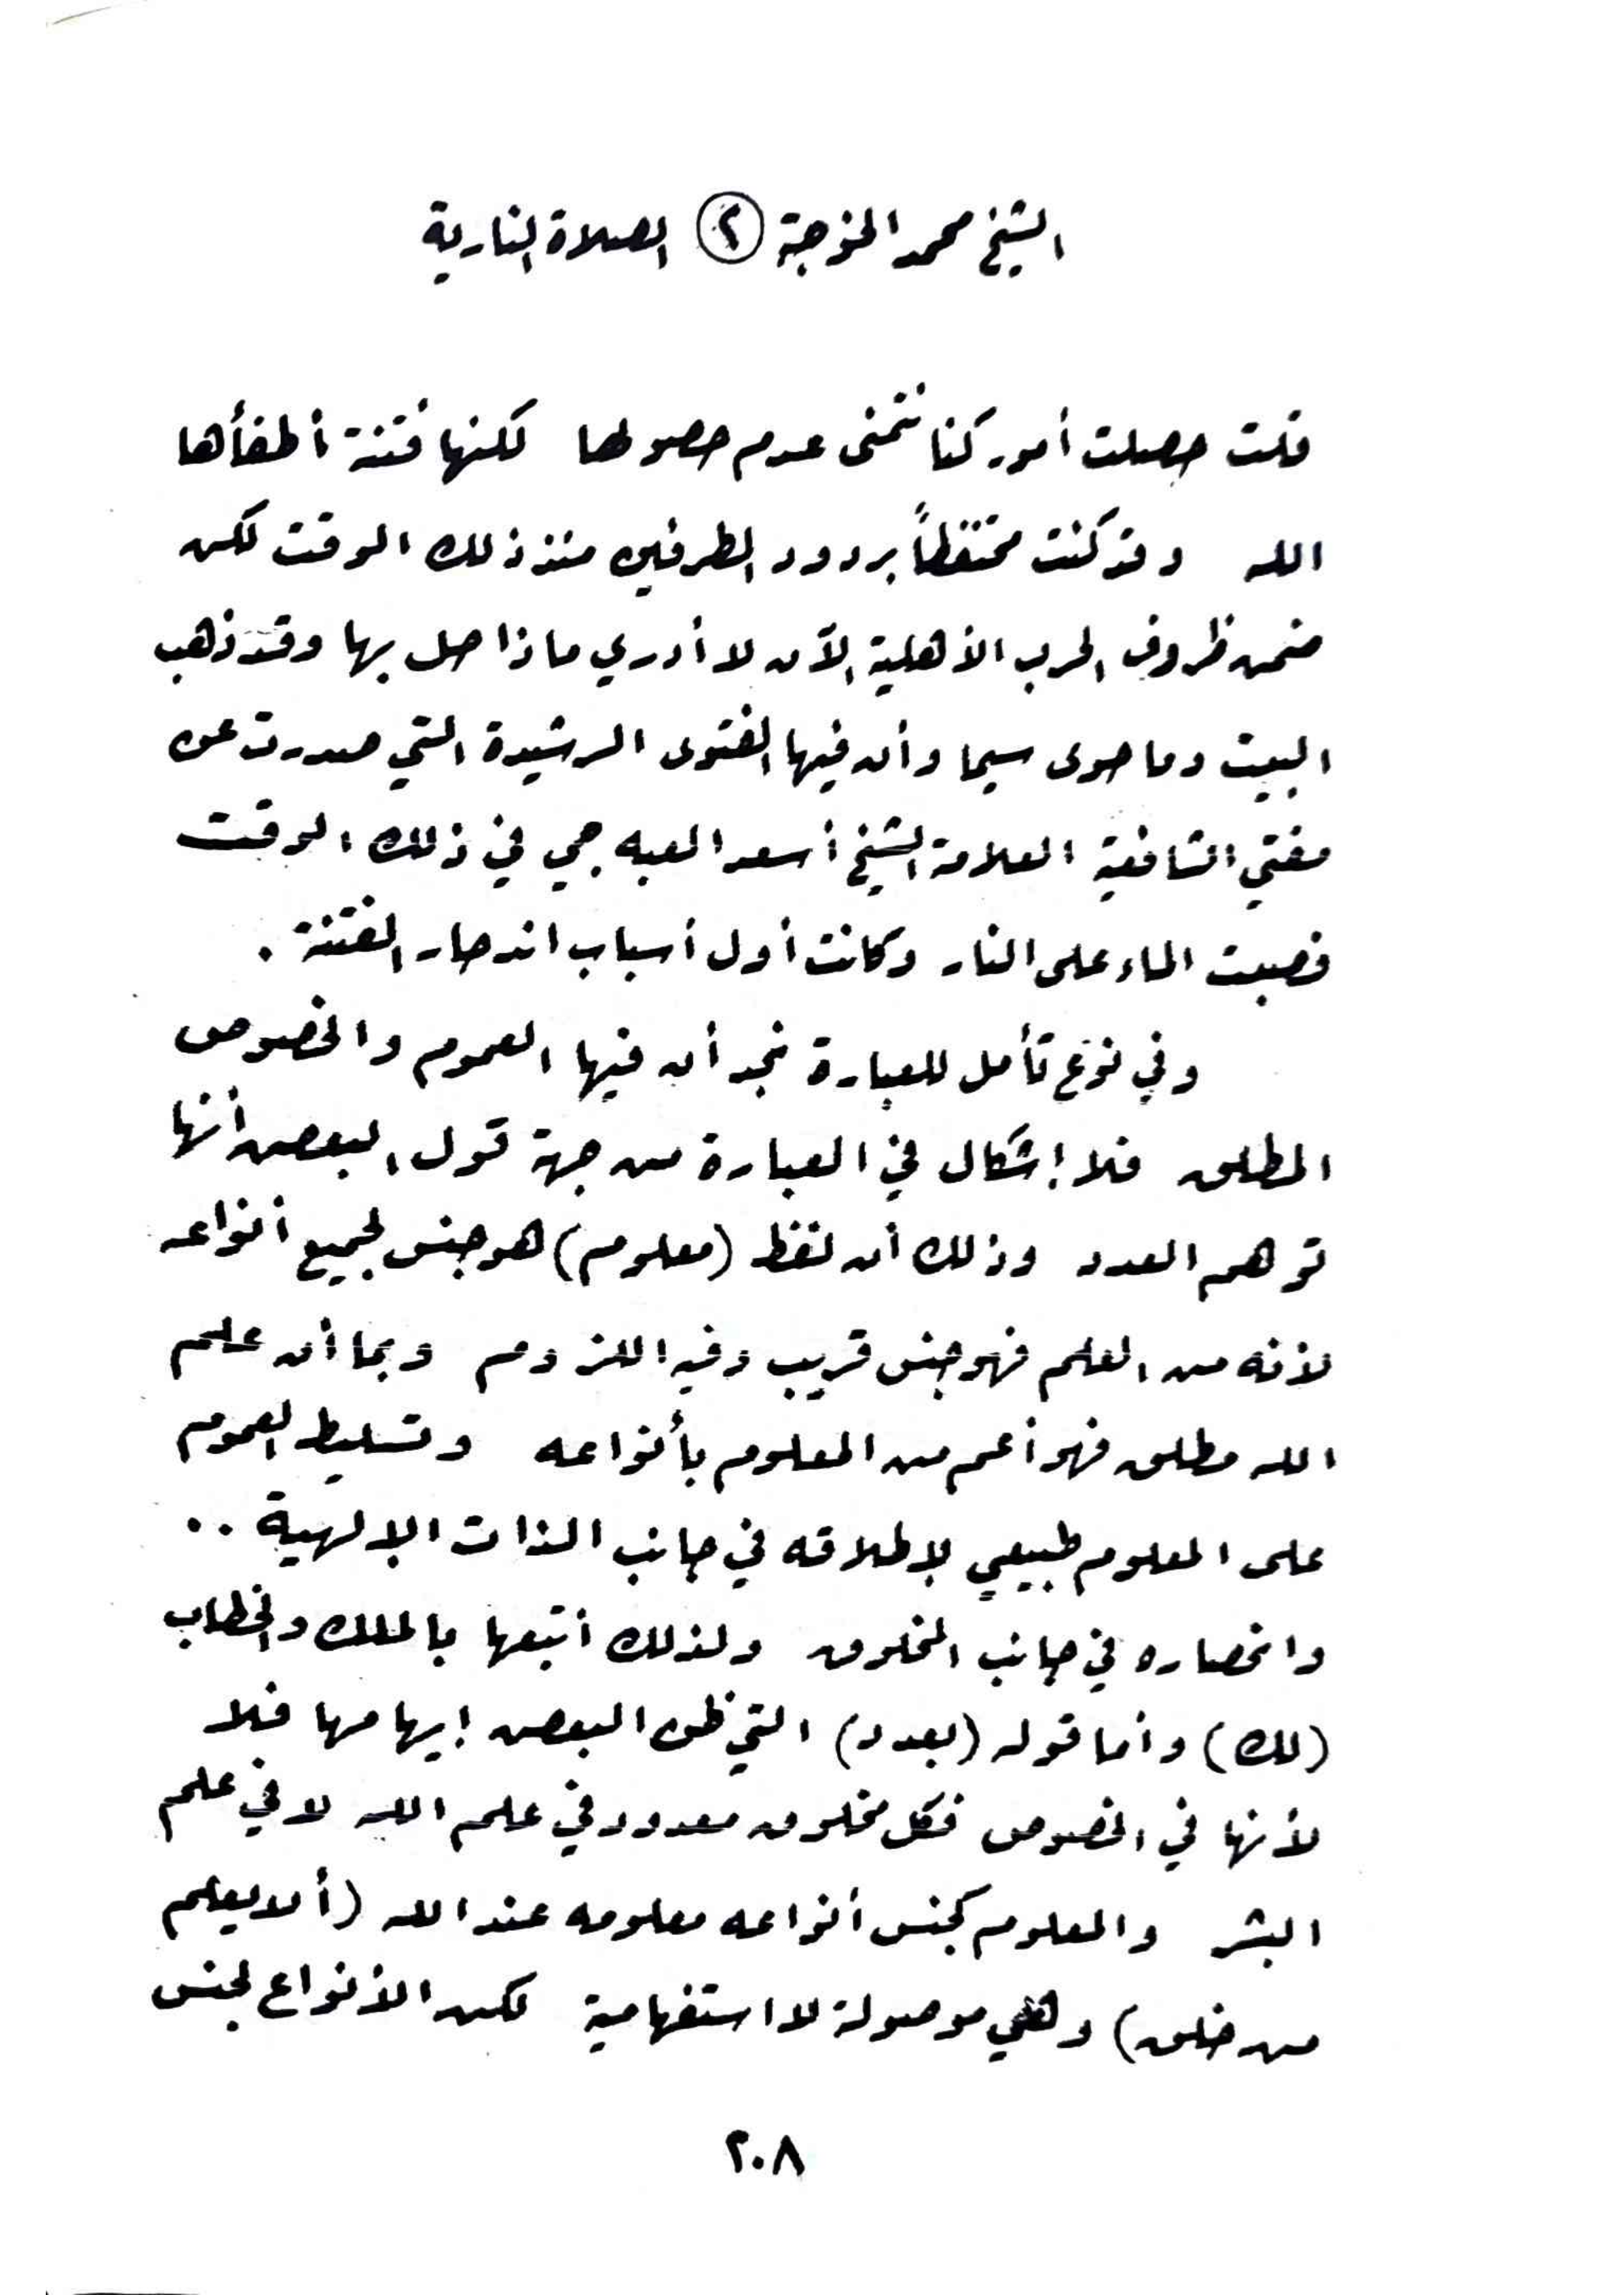 الشيخ محمد الخوجة ٢ الصلاة النارية
قلت حصلت أمور كنا نتمنى عدم حصولها لكنها فتنة أطفأها
الله وقد كنت محتفظاً بردود الطرفين منذ ذلك الوقت لكن
ضمن ظروف الحرب الأهلية الآن لا أدري ماذا حل بها وقد ذهب
البيت وما حوى سيما وأن فيها الفتوى الرشيدة التي صدرت عن
مفتي الشافعية العلامة الشيخ أسعد العبه جي في ذلك الوقت
فصبت الماء على النار وكانت أول أسباب اندحار الفتنة .
وفي نوع تأمل للعبارة نجد أن فيها العموم والخصوص
المطلق فلا إشكال في العبارة من جهة قول البعض أنها
توهم العدد وذلك أن لفظ (معلوم) هو جنس لجميع أنواعه
لأنه من العلم فهو جنس قريب وفيه اللزوم وبما أن علم
الله مطلق فهو أعم من المعلوم بأنواعه وتسليط العموم
على المعلوم طبيعي لإطلاقه في جانب الذات الإلهية ..
وانحصاره في جانب المخلوق ولذلك أتبعها بالملك والخطاب
(لك) وأما قوله (بعدد) التي ظن البعض إيهامها فلا
لأنها في الخصوص فكل مخلوق معدود في علم الله لا في علم
البشر والمعلوم كجنس أنواعه معلومه عند الله (ألا يعلم
من خلق) وهي موصولة لا استفهامية لكن الأنواع لجنس
٢٠٨